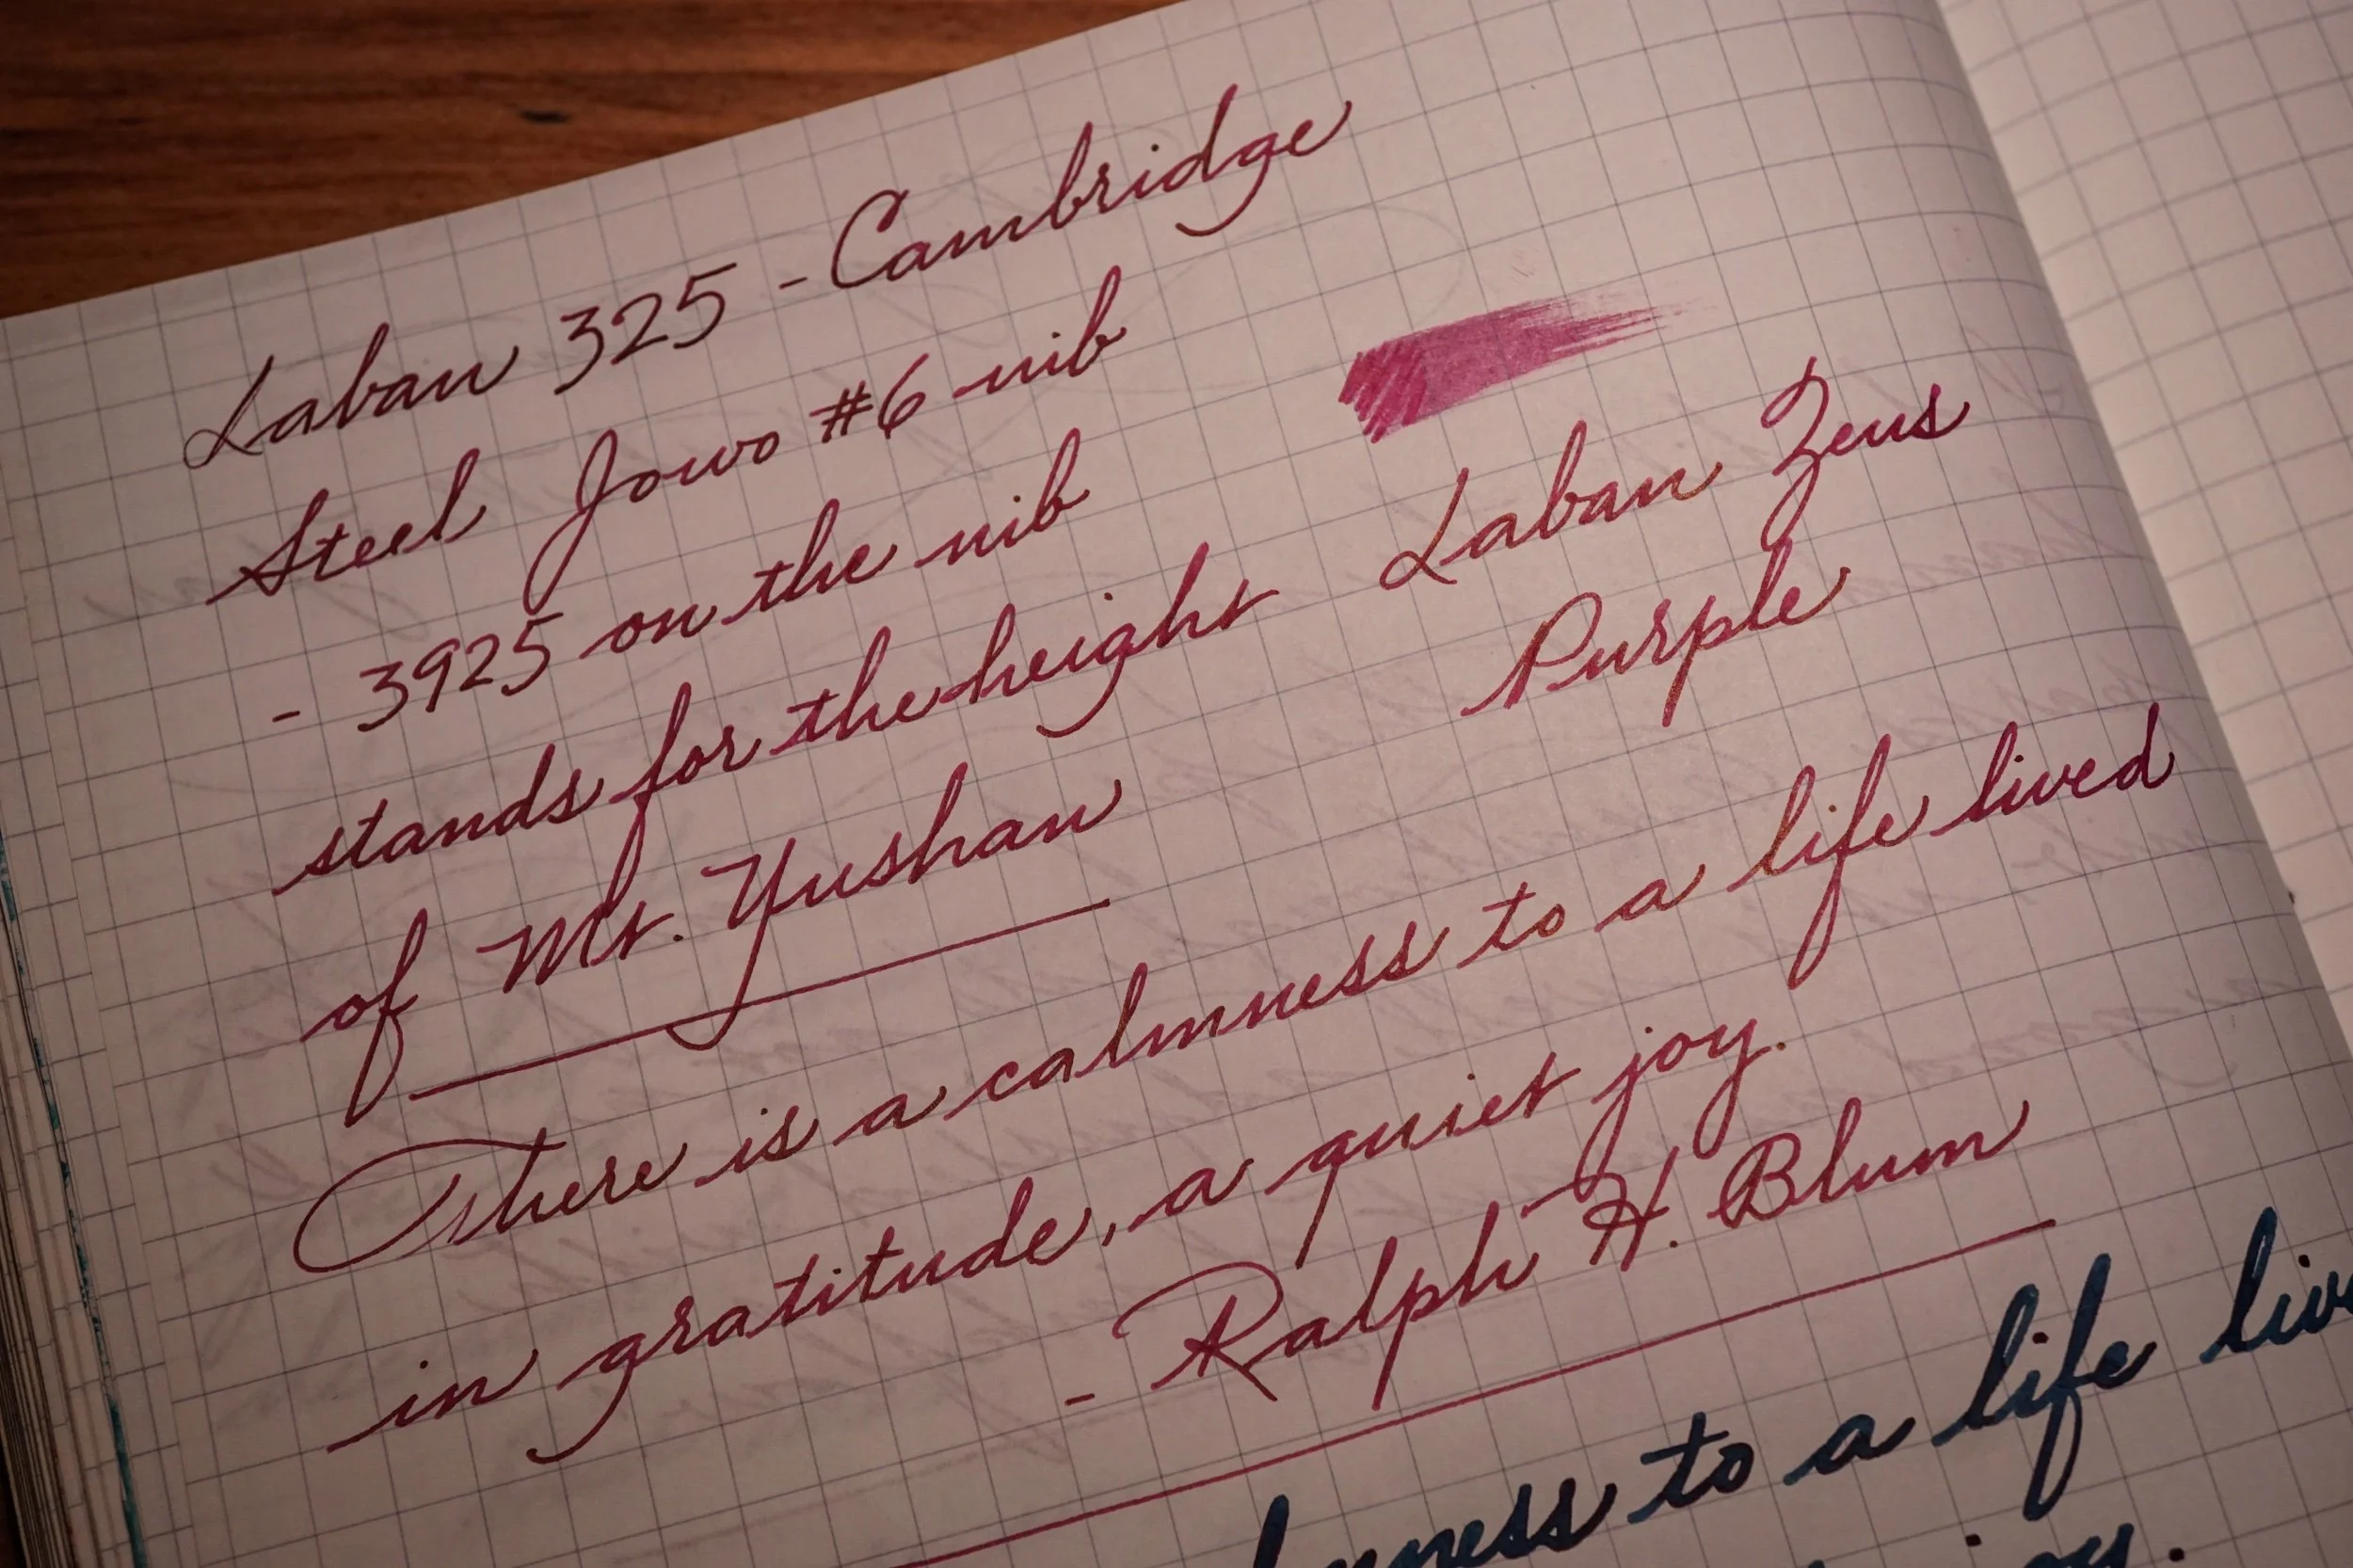 Laban 325 - Cambridge
Steel Jowo #6 nib
- 3925 on the nib
stands for the height
of Mt. Yushan
Laban Zeus
Purple
There is a calmness to a life lived
in gratitude, a quiet joy.
- Ralph H. Blum
to a life